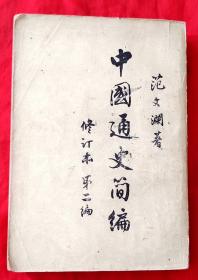 范文澜著
中國通史简編
修订本 第二編